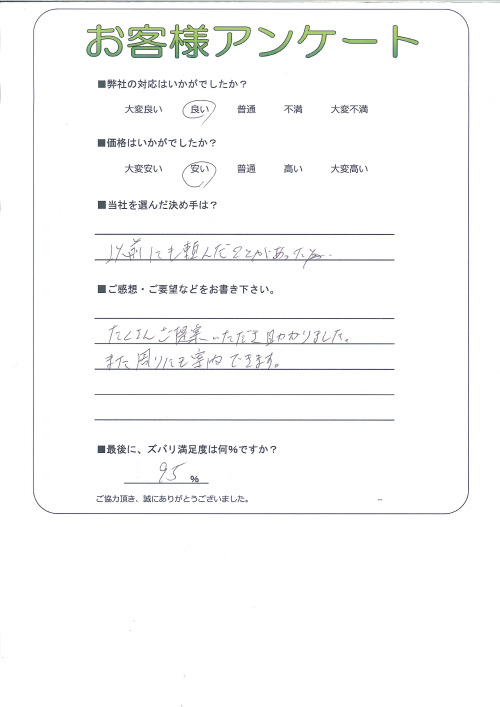 お客様アンケート
■弊社の対応はいかがでしたか？
大変良い 良い 普通 不満 大変不満
■価格はいかがでしたか？
大変安い 安い 普通 高い 大変高い
■当社を選んだ決め手は？
以前にも頼んだことがあった
■ご感想・ご要望などをお書き下さい。
たくさんご提案いただき助かりました。
また周りにも案内できます。
■最後に、ズバリ満足度は何%ですか？
95 %
ご協力頂き、誠にありがとうございました。